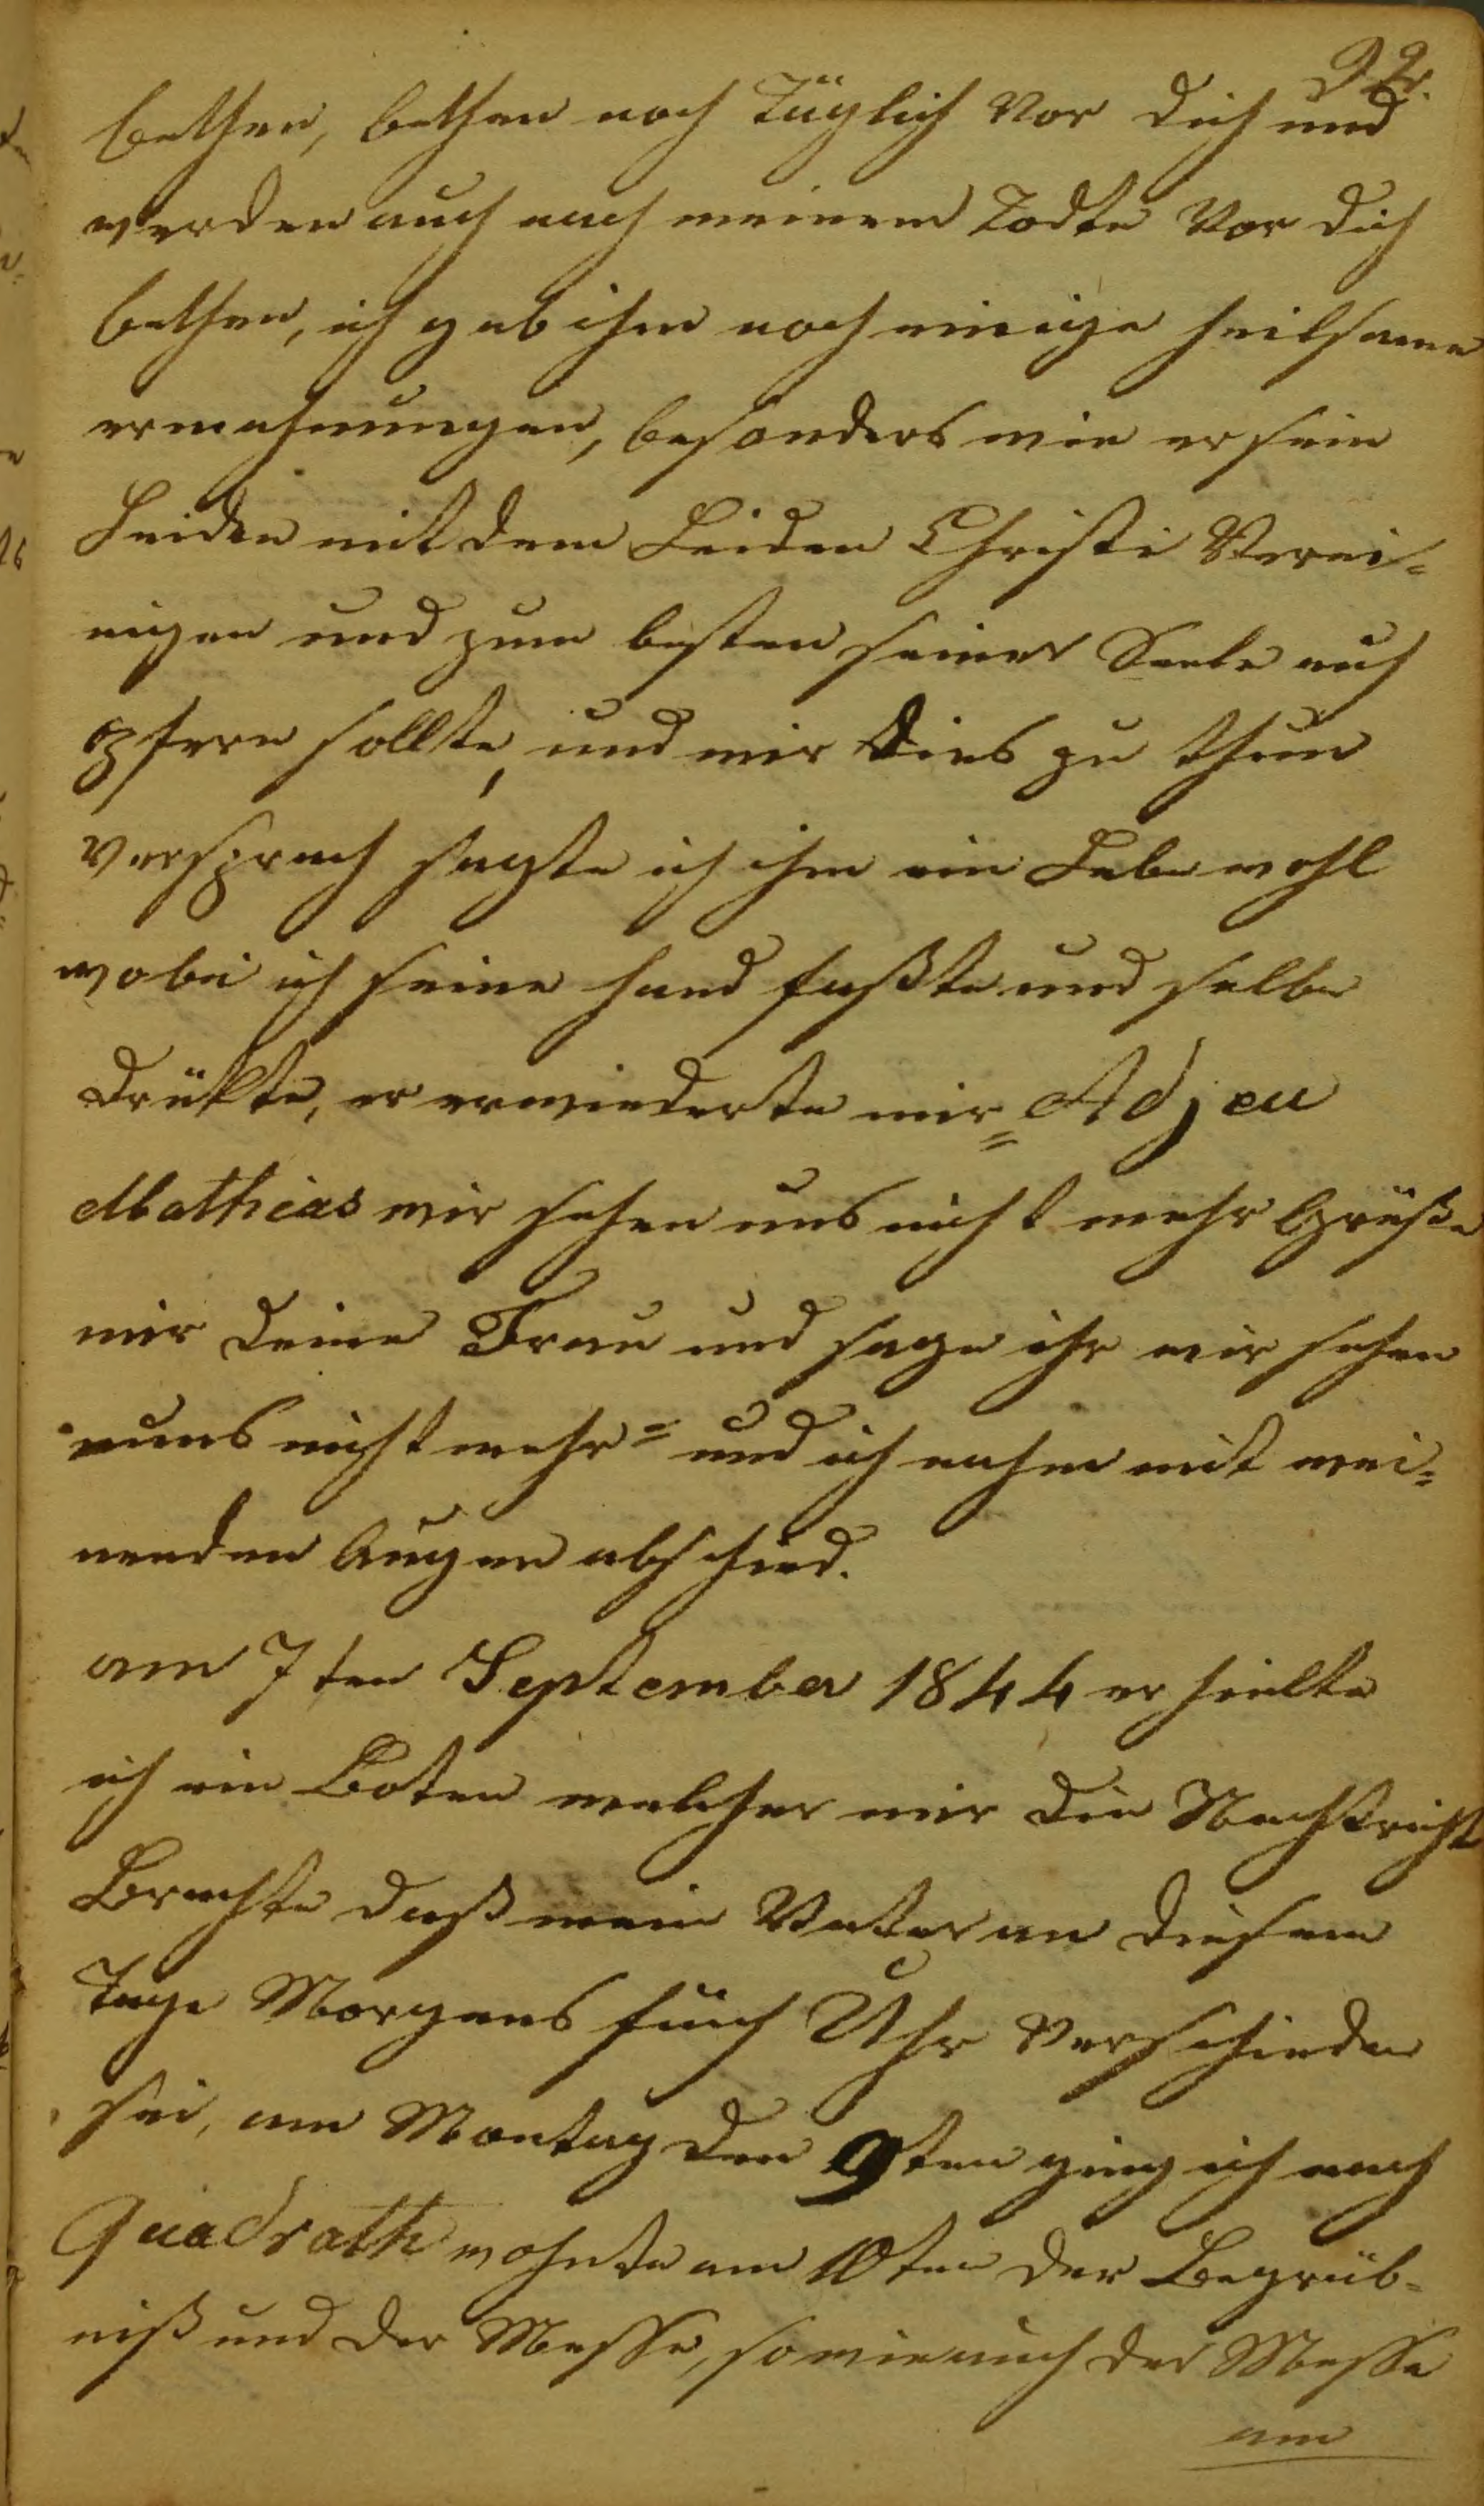 92.
bethen, bethen noch Täglich Vor dich und
werden auch nach meinem Todte Vor dich
bethen, ich gab ihm noch einige heilsame
ermahnungen, besonders wie er sein
Leiden mit dem Leiden Christi Verei-
nigen und zum besten seiner Seele auf
opfern sollte, und mir Dies zu thun
Versprach sagte ich ihm ein Lebewohl
wobei ich seine hand faßte und selbe
drükte, er erwiederte mir = Adjeu
Mathias wir sehen uns nicht mehr Grüße
mir deine Frau und sage ihr wir sehen
uns nicht mehr = und ich nahm mit wei-
nenden Augen abschied.
am 7ten September 1844 erhielte
ich ein Boten welcher mir die Nachtricht
Brachte daß mein Vater an diesem
Tage Morgens fünf Uhr Verschieden
sei, am Montag den 9ten ging ich nach
Quadrath wohnte am 10ten der Begräb-
niß und der Messe, sowie auch der Messe
am